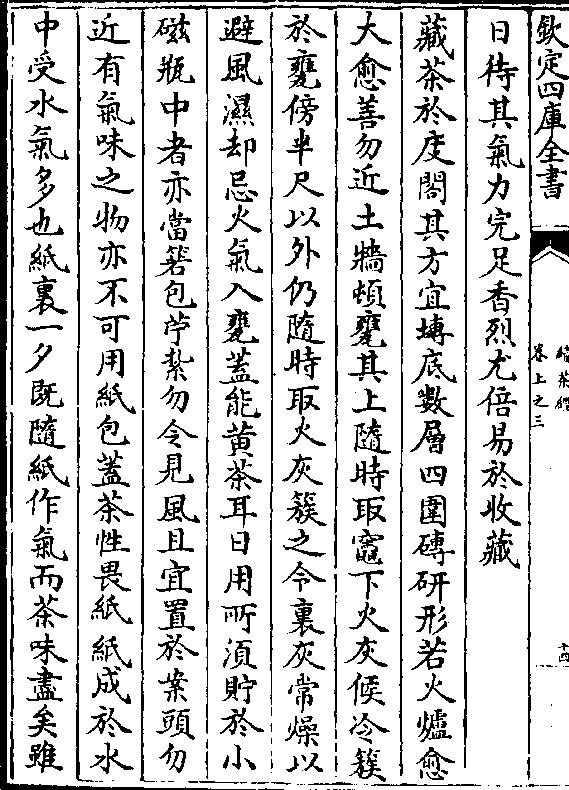 欽定四庫全書
續茶經
卷上之三
十四
日待其氣力完足香烈尤倍易於收藏
藏茶於庋閣其方宜塼底數層四圍磚研形若火爐愈
大愈善勿近土牆頓甕其上隨時取竈下火灰候冷簇
於甕傍半尺以外仍隨時取火灰簇之令裏灰常燥以
避風濕却忌火氣入甕蓋能黄茶耳日用所湏貯於小
磁瓶中者亦當箬包苧紮勿令見風且宜置於案頭勿
近有氣味之物亦不可用紙包蓋茶性畏紙紙成於水
中受水氣多也紙裹一夕既隨紙作氣而茶味盡矣雖